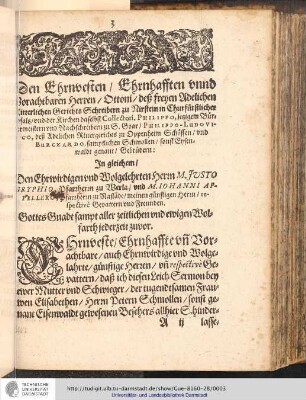 3
Den Ehrnvesten / Ehrnhafften vnnd
Vorachtbaren Herren / Ottoni / deß freyen Adelichen
Ritterlichen Gerichts Schreibern zu Nierstein in Churfürstlicher
Pfaltz / vnd der Kirchen daselbst Collectori. PHILIPPO, jetzigem Bür-
germeistern vnd Nachschreibern zu S. Goar / PHILIPPO-LUDOVI-
CO, deß Adelichen Rittergerichts zu Oppenheim Schöffen / vnd
BURCKARDO, sämptlichen Schmollen / sonst Eysen-
waldt genant / Gebrüdern:
In gleichem /
Den Ehrwürdigen vnd Wolgelehrten Herrn M. JUSTO
Pfarrherrn zu Werla / vnd M. IOHANNI AP-
Pfarrherrn zu Nastäde / meinen günstigen Herrn / re-
spectivè Gevattern vnd Freunden.
Gottes Gnad sampt aller zeitlichen vnd ewigen Wol-
farth jederzeit zuvor.
EHrnveste / Ehrnhaffte vñ Vor-
achtbare / auch Ehrnwürdige vnd Wolge-
lahrte / günstige Herren / vñ respectivè Ge-
vattern / daß ich diesen Leich Sermon bey
ewer Mutter vnd Schwieger / der tugentsamen Frau-
wen Elisabethen / Herrn Petern Schmollen / sonst ge-
nant Eisenwaldt gewesenen Besehers allhier S. hinder-
A ij lasse,
TECHNISCHE
UNIVERSITÄT
DARMSTADT
http://tudigit.ulb.tu-darmstadt.de/show/Gue-8160-28/0003
Universitäts- und Landesbibliothek Darmstadt